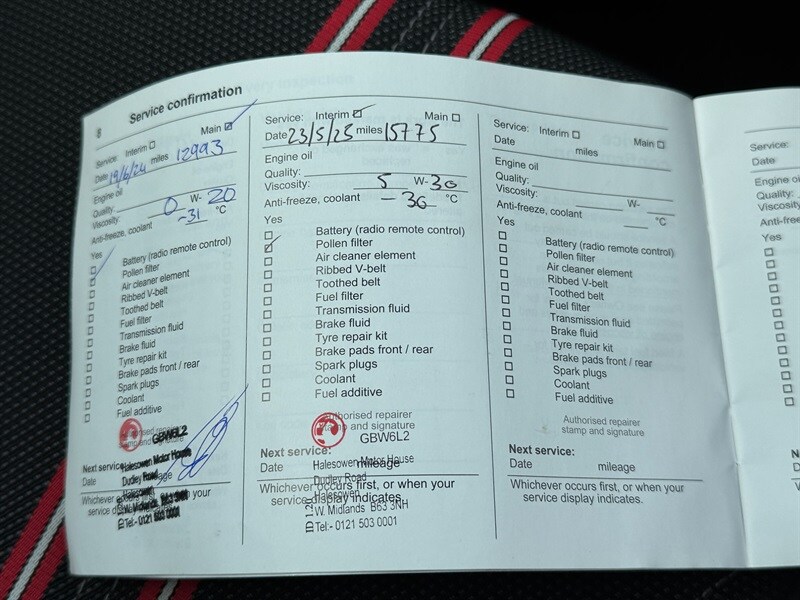 8 Service confirmation
Service: Interim ☐ Main ☑
Date 19/6/24 miles 12993
Engine oil
Quality:
Viscosity: 0 W- 20
Anti-freeze, coolant -31 °C
Yes
Battery (radio remote control)
Pollen filter
Air cleaner element
Ribbed V-belt
Toothed belt
Fuel filter
Transmission fluid
Brake fluid
Tyre repair kit
Brake pads front / rear
Spark plugs
Coolant
Fuel additive
GBW6L2
Next service:
Halesowen Motor House
Date mileage
Dudley Road
Whichever occurs first, or when your
Halesowen
service display
W. Midlands B63 3NH
Tel:- 0121 503 0001
Service: Interim ☑ Main ☐
Date 23/5/25 miles 15775
Engine oil
Quality:
Viscosity: 5 W- 30
Anti-freeze, coolant -36 °C
Yes
Battery (radio remote control)
Pollen filter
Air cleaner element
Ribbed V-belt
Toothed belt
Fuel filter
Transmission fluid
Brake fluid
Tyre repair kit
Brake pads front / rear
Spark plugs
Coolant
Fuel additive
Authorised repairer
stamp and signature
GBW6L2
Next service:
Halesowen Motor House
Date mileage
Dudley Road
Whichever occurs first, or when your
Halesowen
service display indicates.
W. Midlands B63 3NH
Tel:- 0121 503 0001
Service: Interim ☐ Main ☐
Date miles
Engine oil
Quality:
Viscosity: W-
Anti-freeze, coolant °C
Yes
Battery (radio remote control)
Pollen filter
Air cleaner element
Ribbed V-belt
Toothed belt
Fuel filter
Transmission fluid
Brake fluid
Tyre repair kit
Brake pads front / rear
Spark plugs
Coolant
Fuel additive
Authorised repairer
stamp and signature
Next service:
Date mileage
Whichever occurs first, or when your
service display indicates.
Service:
Date
Engine oil
Quality:
Viscosity
Anti-free
Yes